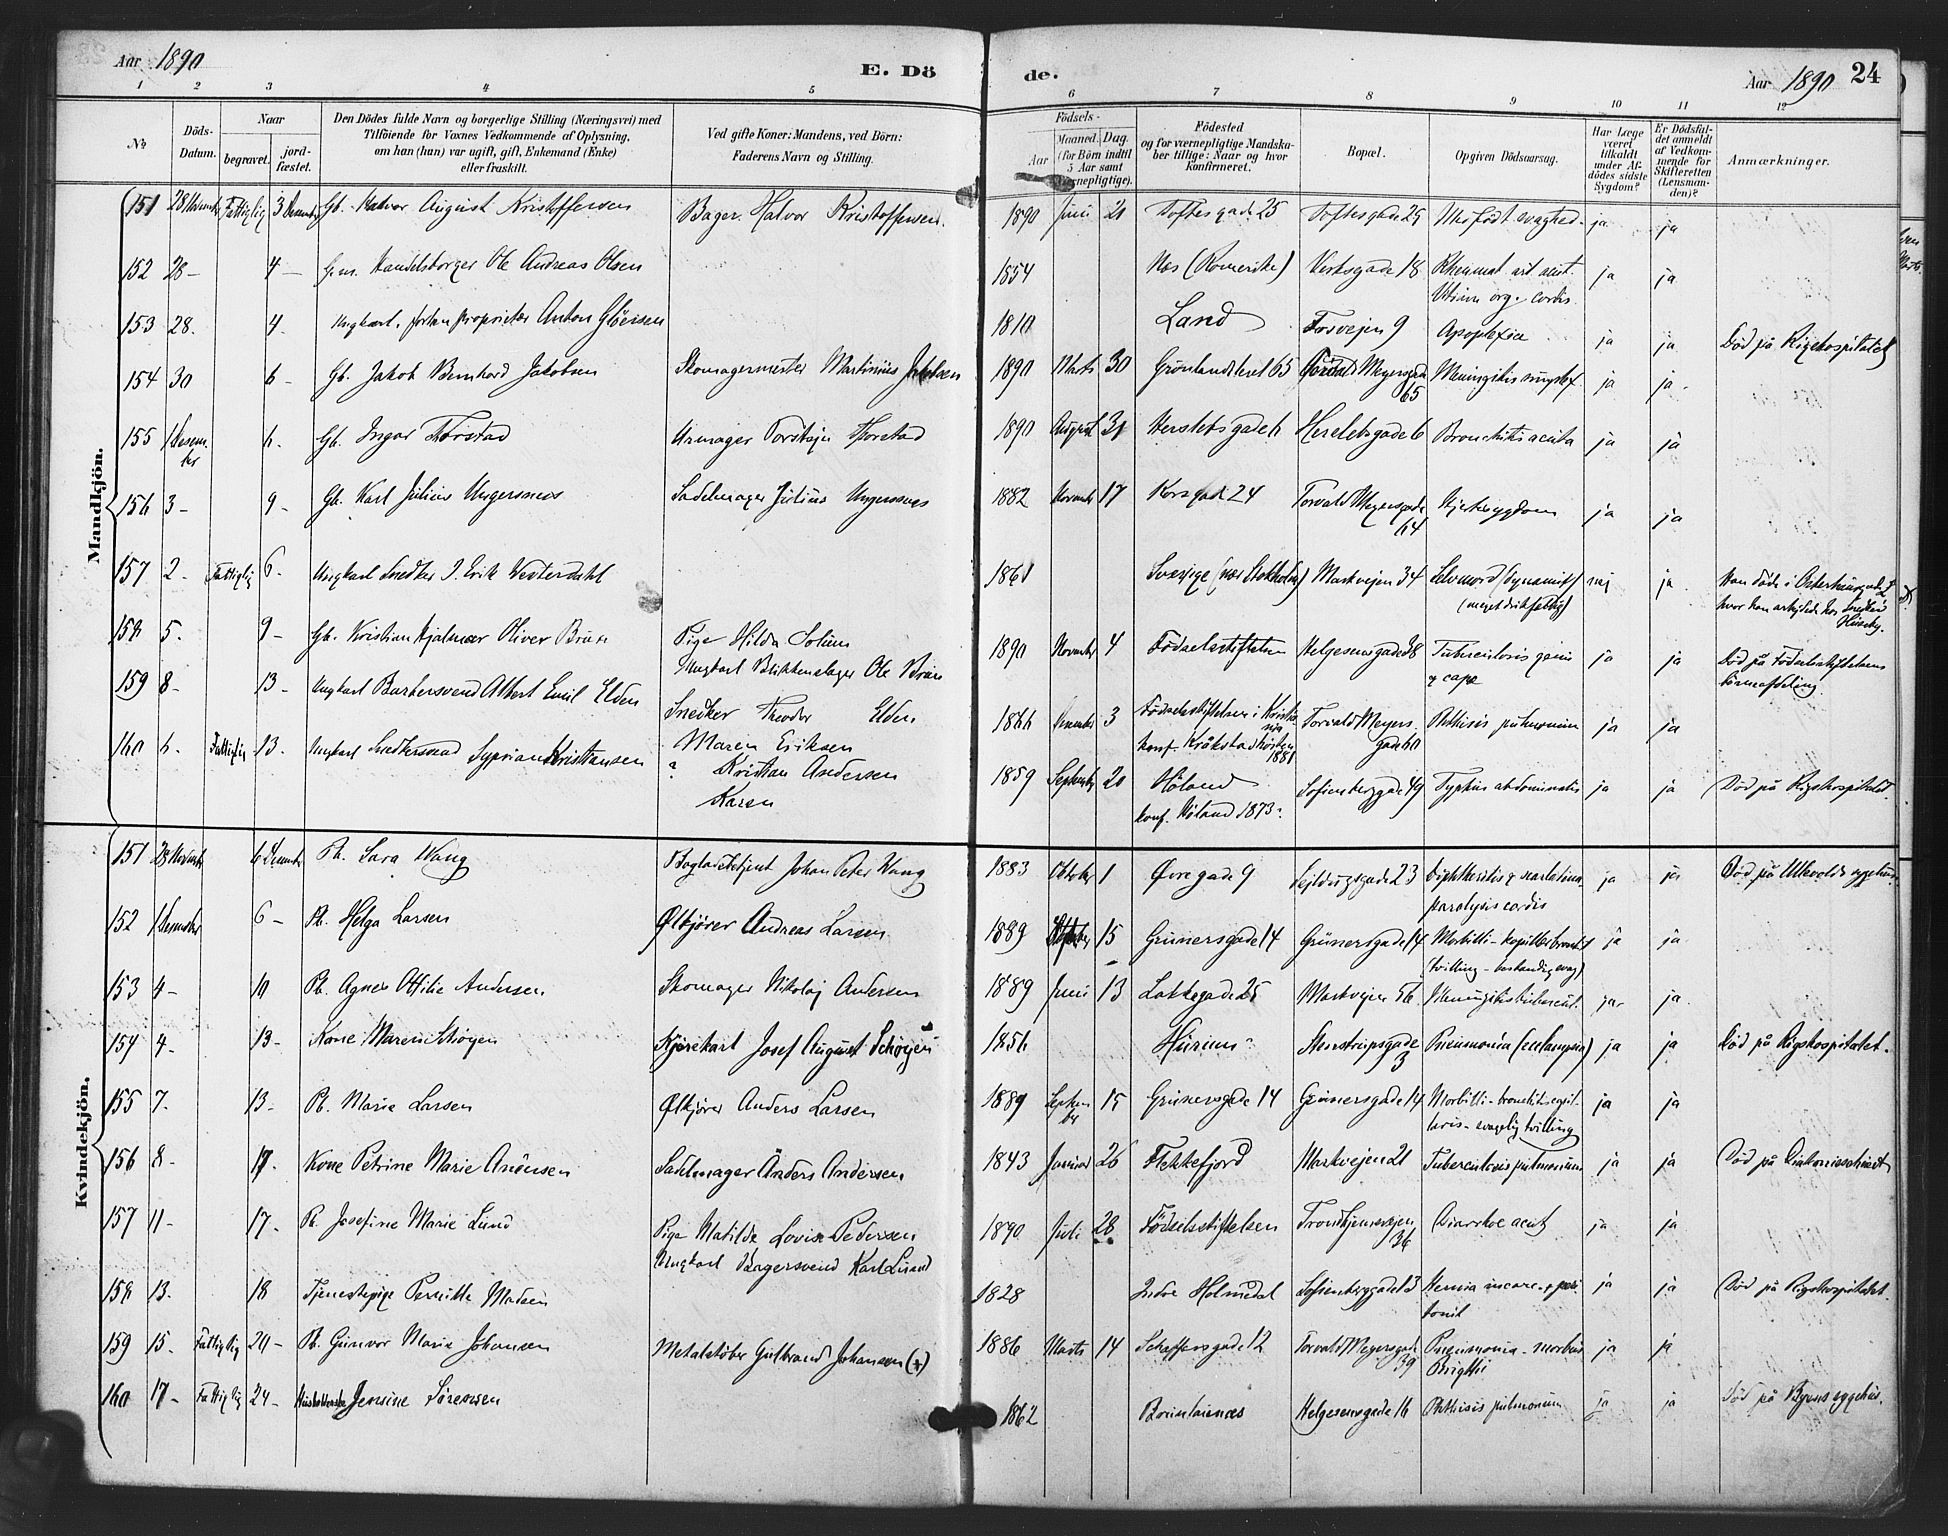 Aar 1890
E. Döde.
Aar 1890
24
1 2 3 4 5 6 7 8 9 10 11 12
No
Döds-Datum.
Naar
begravet.
jord-fæstet.
Den Dödes fulde Navn og borgerlige Stilling (Næringsvei) med
Tilföiende for Voxnes Vedkommende af Oplysning,
om han (hun) var ugift, gift, Enkemand (Enke)
eller fraskilt.
Ved gifte Koner: Mandens, ved Börn:
Faderens Navn og Stilling.
Födsels-
Aar
Maaned. Dag.
(for Börn indtil
5 Aar samt
Födested
og for værnepligtige Mandska-
ber tillige: Naar og hvor
Konfirmeret.
Bopæl.
Opgiven Dödsaarsag.
Har Læge
været
tilkaldt
under Af-
dödes sidste
Sygdom?
Er Dödsfal-
det anmeldt
af Vedkom-
mende for
Skifteretten
(Lensman-
den)?
Anmærkninger.
Mandkjön.
151 28 November Fattiglig 3 Desember Gb. Halvor August Kristoffersen Bager Halvor Kristoffersen. 1890 Juni 21 Toftesgade 25 Toftesgade 25 Medfødt svaghed. ja ja
152 28 - 4 - Handelsborger Ole Andreas Olsen 1854 Næs (Romerike) Verksgade 18 Rheumat. art. acut.
Vitium org. cordis. ja ja
153 28. 4 - Ungkarl. proprietær Anton Glöersen 1810 Land Fosvejen 9 Apoplexia ja ja Död på Rigshospitalet
154 30 6 - Gb. Jakob Bernhard Jakobsen Skomagermester Martinius Jakobsen 1890 Marts 30 Grønlandsleret 65 Torvald Meyersgade
65 Meningitis simplex. ja ja -
155 1 Desem-
ber 6. Gb. Ingar Torstad Urmager Torstad 1890 August 31 Herslebsgade 6 Herslebsgade 6 Bronchitis acuta ja ja
156 3 - 9 - Gb. Karl Julius Ungersnes Sadelmager Julius Ungersnes 1882 November 17 Korsgade 24 Torvald Meyersgade
64 Hjertesygdom ja ja
157 2 - Fattiglig 6 - Ungkarl Snedker J. Erik Westerdahl 1861 Sverige (nær Stokholm) Markvejen 34 Selvmord (dynamit)
(meget drikfældig) nej ja Han døde i
hvor han arbejdede hos Snedker
Huseby.
158 5. 9 - Gb. Kristian Hjalmar Oliver Bruun Pige Hilda Solum
Ungkarl Blikkenslager Ole Bruun 1890 November 4 Födselsstiftelsen Helgesensgade 38 Tuberculosis genu
& cap. ja ja Död på Födselsstiftelsens
börneafdeling.
159 8 - 13 - Ungkarl Barbersvend Albert Emil Elden Snedker Theodor Elden
Maren Eriksen 1866 Desember 3 Födselsstiftelsen i Kristia-
nia
konf. Kråkstad høsten
1881 Torvald Meyers
gade 60 Phthisis pulmonum ja ja
160 6. Fattiglig 13. Ungkarl Snedkersvend Syprian Kristiansen ? Kristian Andersen
Karen 1859 September 20 Höland
konf. Höland 1873 Sofienberggade 49 Typhus abdominalis ja ja Död på Rigshospitalet.
Kvindekjön.
151 28 November 6 Desember Pb. Sara Wang Bogladebetjent Johan Peter Wang 1883 Oktober 1 Øvregade 9 Sejldugsgade 23 Diphtheritis & scarlatina
paralysis cordis ja ja Død på Ullevolds sygehus.
152 1 Desember 6 - Pb. Helga Larsen Ølkjører Andreas Larsen 1889 15 Grünersgade 14 Grünersgade 14 Morbilli -
(tvilling - bestandig svag) ja ja
153 4 - 10 Pb. Agnes Ottilie Andersen Skomager Nikolaj Andersen 1889 Juni 13 Lakkegade 25 Markvejen 56 Meningitis tubercul. ja ja
154 4 - 13 - Kone Maren Schøyen Kjørekarl Josef August Schøyen 1856 Hurum Stenstrupsgade
3 Pneumonia (eclampsia) ja ja Död på Rigshospitalet.
155 7. 13 - Pb. Maria Larsen Ølkjører Anders Larsen 1889 Septem-
ber 15 Grünersgade 14 Grünersgade 14 Morbilli - bronchit. capil-
laris - svagelig tvilling ja ja
156 8 - 17. Kone Petrine Marie Andersen Sadelmager Anders Andersen. 1843 Januar 26 Flekkefjord Markvejen 21 Tuberculosis pulmonum ja ja Död på Diakonissehuset
157 11 - 17. Pb. Josefine Marie Lund Pige Matilde Lovise Pedersen
Ungkarl Bagersvend Karl Lund 1890 Juli 28 Födselsstiftelsen Trondhjemsvejen
36 Diarrhoe acut. ja ja
158 13. 18 Tjenestepige Pernille Madsen 1828 Indre Holmedal Sofienberggade 13 Hernia incarc. & peri-
tonit ja ja Död på Rigshospitalet
159 15. Fattiglig 20 - Pb. Gunvor Marie Johansen Metalstøber Gulbrand Johansen (+) 1886 Marts 14 Schaffersgade 12 Torvald Meyersgade
39 Pneumonia - morbus
Brightii ja ja
160 17 - Fattiglig 24 - Jensine Sørensen 1862 Helgesensgade 16 Phthisis pulmonum ja ja Död på Byens sygehus.